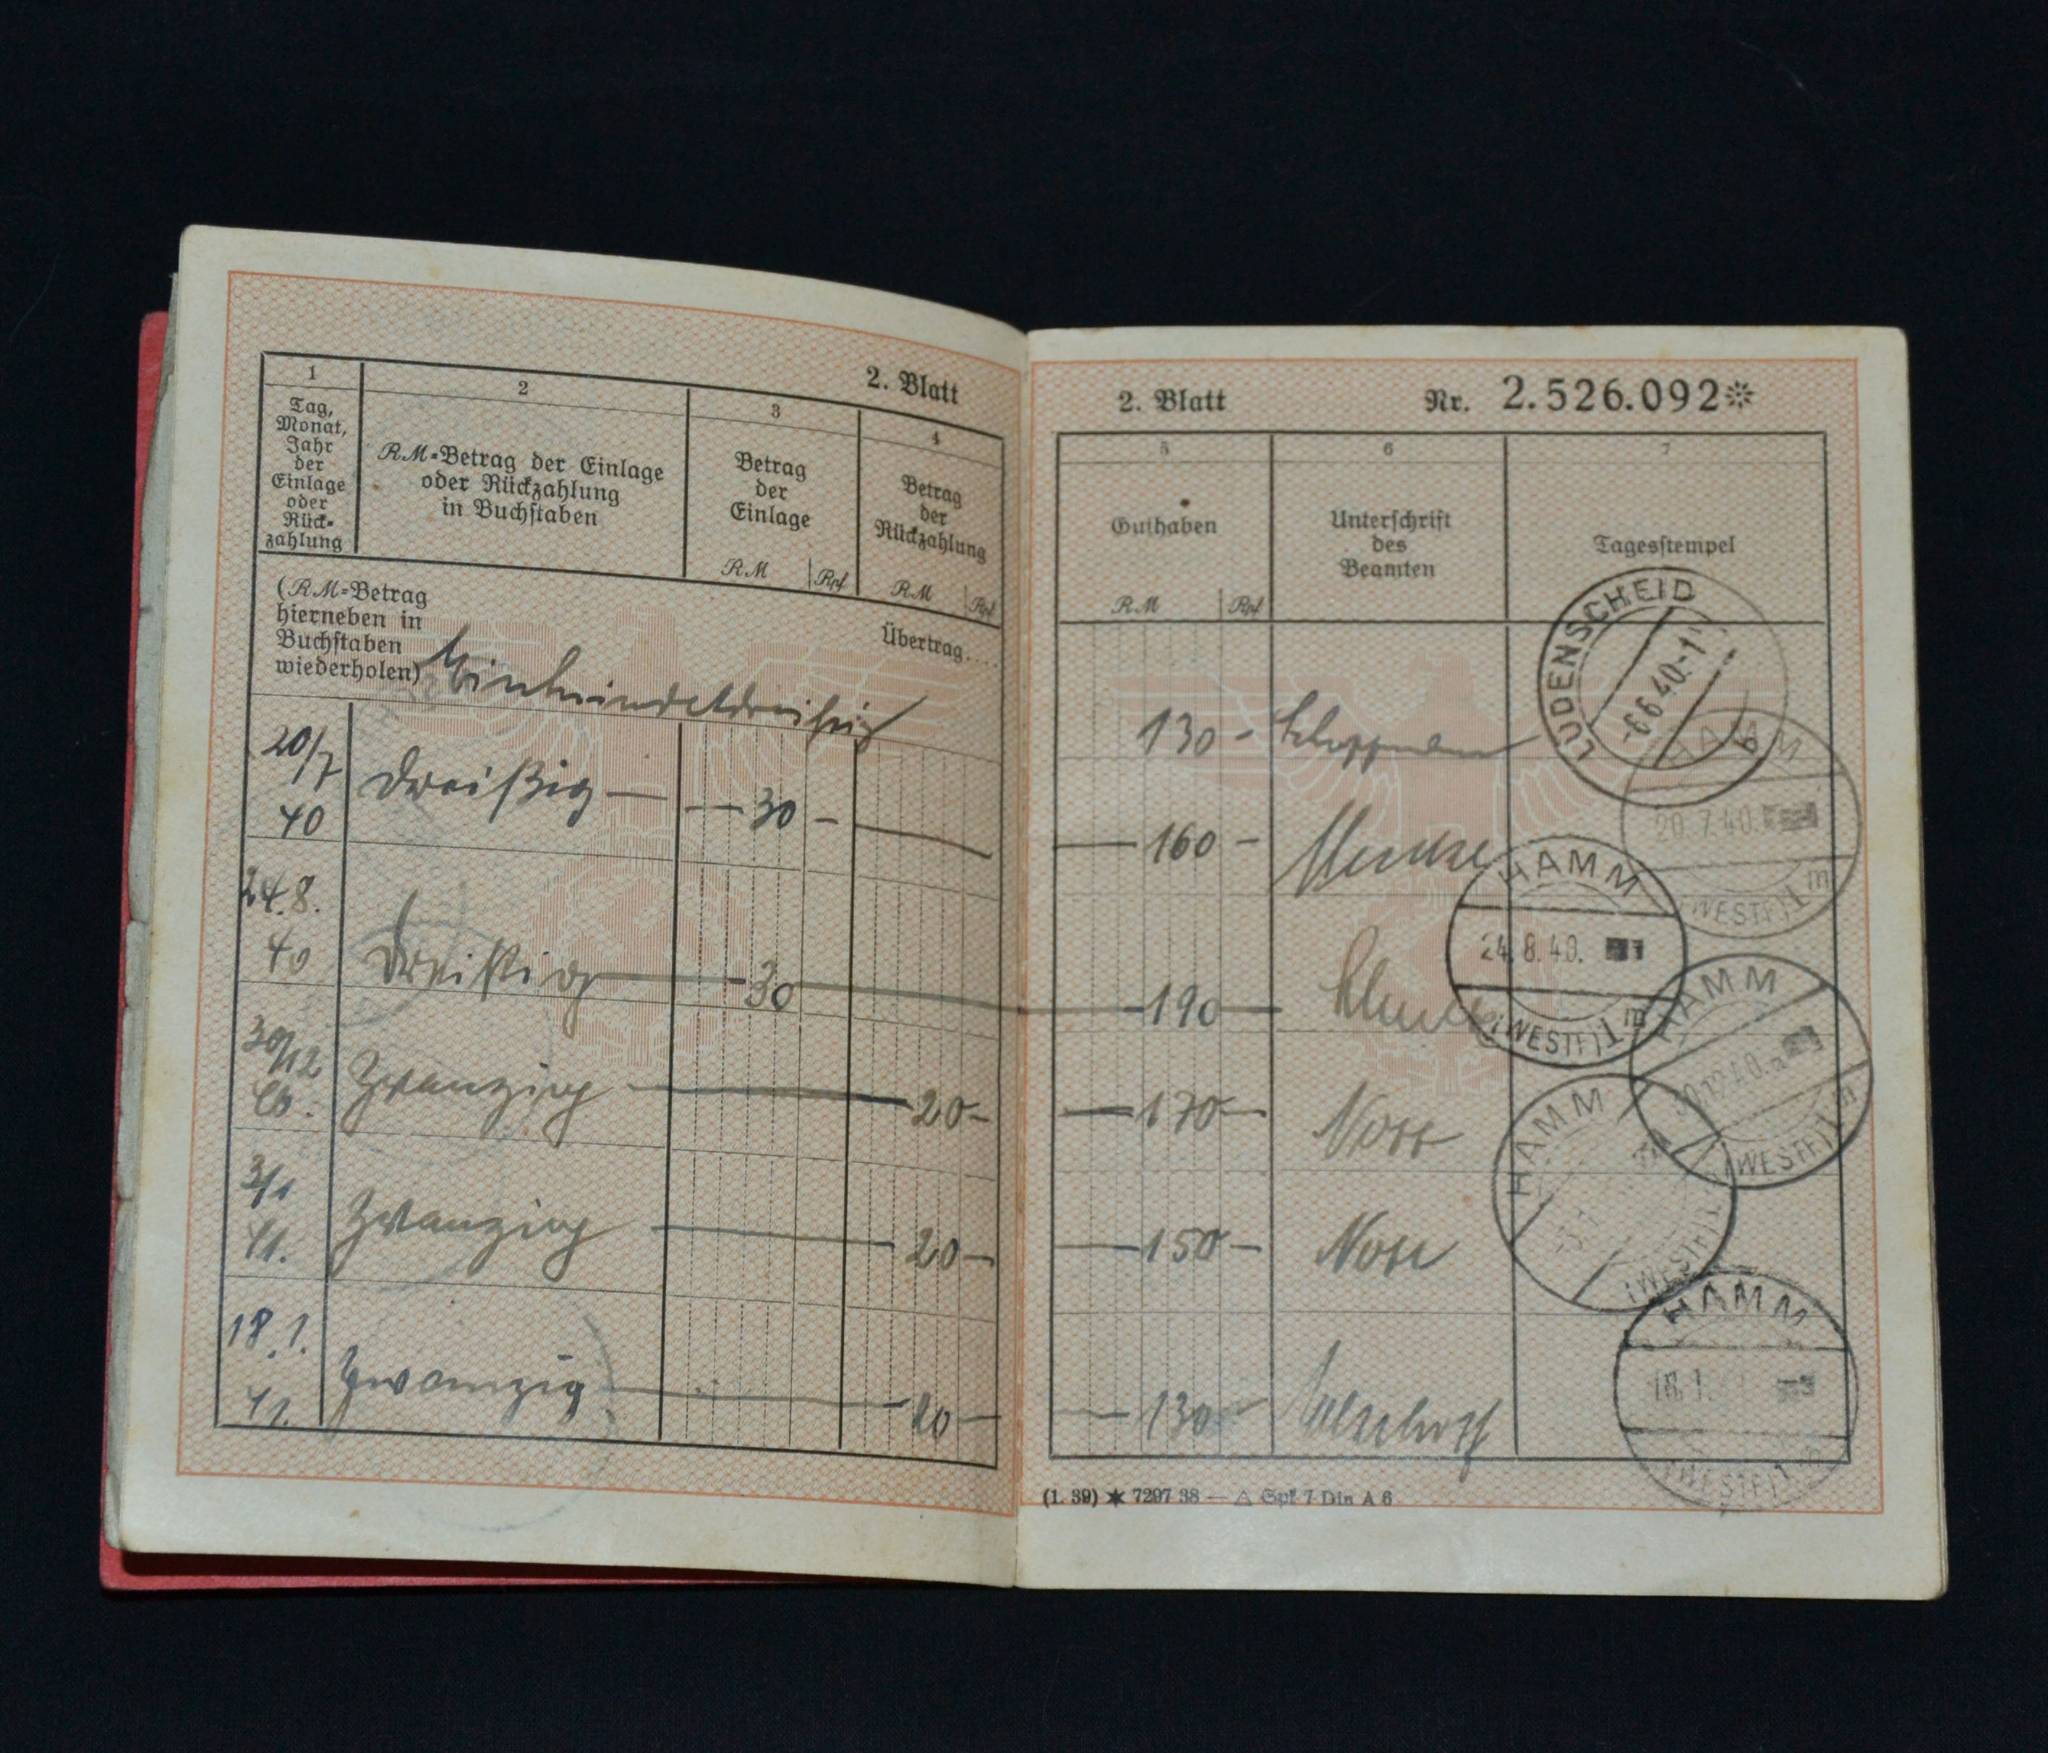 2. Blatt
1
2
3
4
Tag,
Monat,
Jahr
der
Einlage
oder
Rück-
zahlung
RM-Betrag der Einlage
oder Rückzahlung
in Buchstaben
Betrag
der
Einlage
RM Rpf
Betrag
der
Rückzahlung
RM Rpf
(RM-Betrag
hierneben in
Buchstaben
wiederholen)
Übertrag....
Einhundertdreißig
20/7
40
dreißig — — 30 —
24.8.
40
Dreißig — 30
30/12
40.
Zwanzig — 20 —
3/1
41.
Zwanzig — 20 —
18.1.
41.
Zwanzig — 20 —
2. Blatt Nr. 2.526.092*
5
6
7
Guthaben
RM Rpf
Unterschrift
des
Beamten
Tagesstempel
130 -
LÜDENSCHEID
-6.6.40.-1
b
— 160 —
HAMM
20.7.40.
(WESTF) 1 m
— 190 —
HAMM
24.8.40.
(WESTF) 1 m
— 170 —
HAMM
30.12.40.
(WESTF) 1 m
— 150 —
HAMM
(WESTF)
— 130 —
HAMM
18.1.
(WESTF) 1
(1. 39) ✶ 7297 38 — △ Spk 7 Din A 6